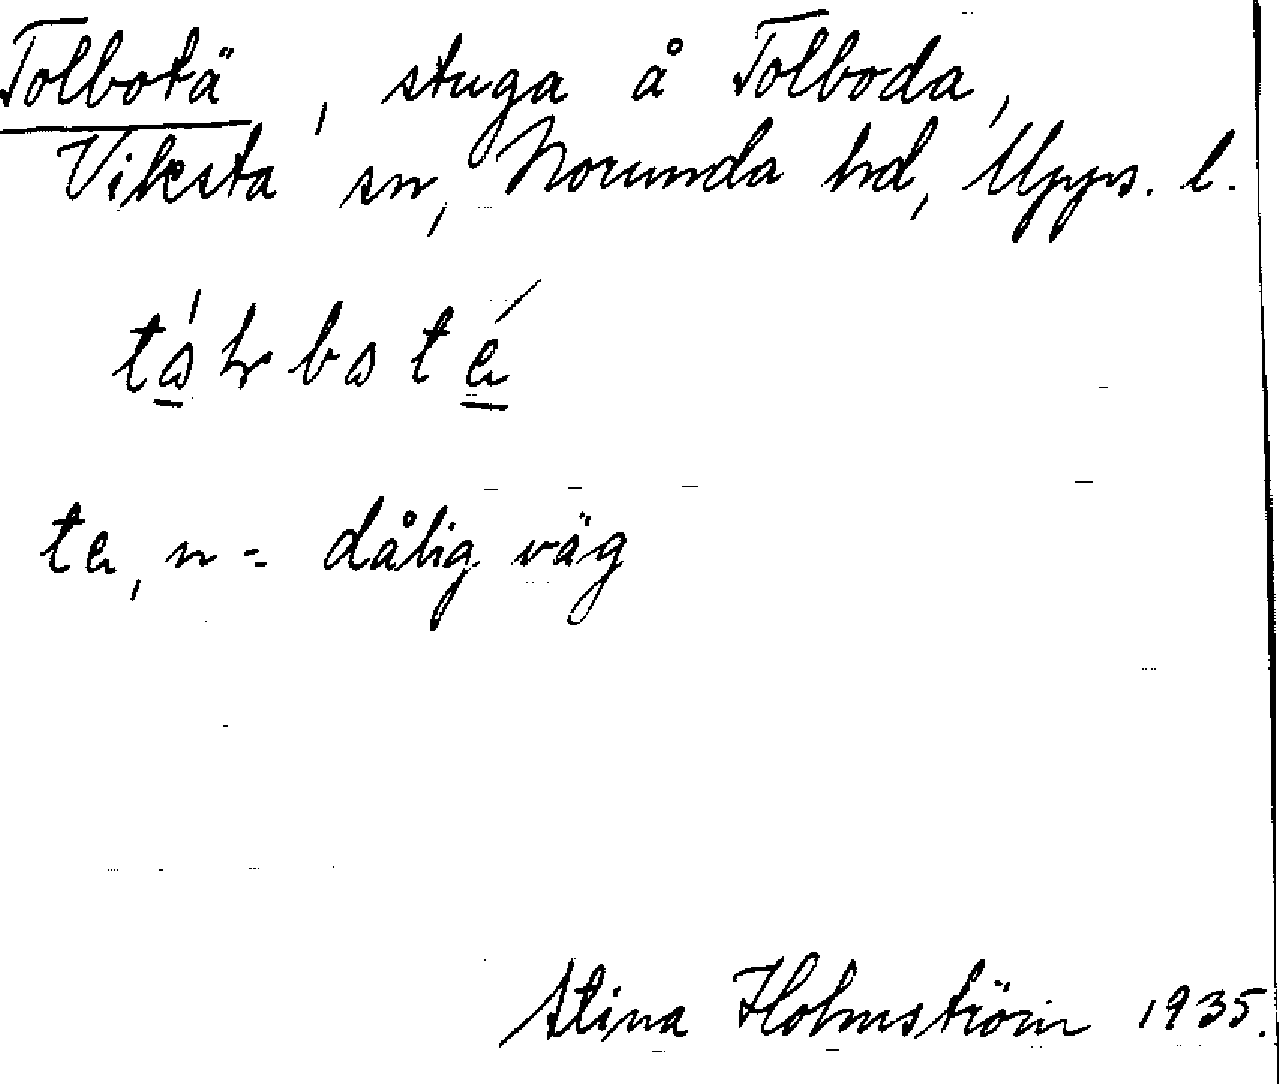 Tolbotä, stuga å Tolboda,
Viksta sn, Norunda hd, Upps. l.
te, n = dålig väg
Stina Holmström 1935.